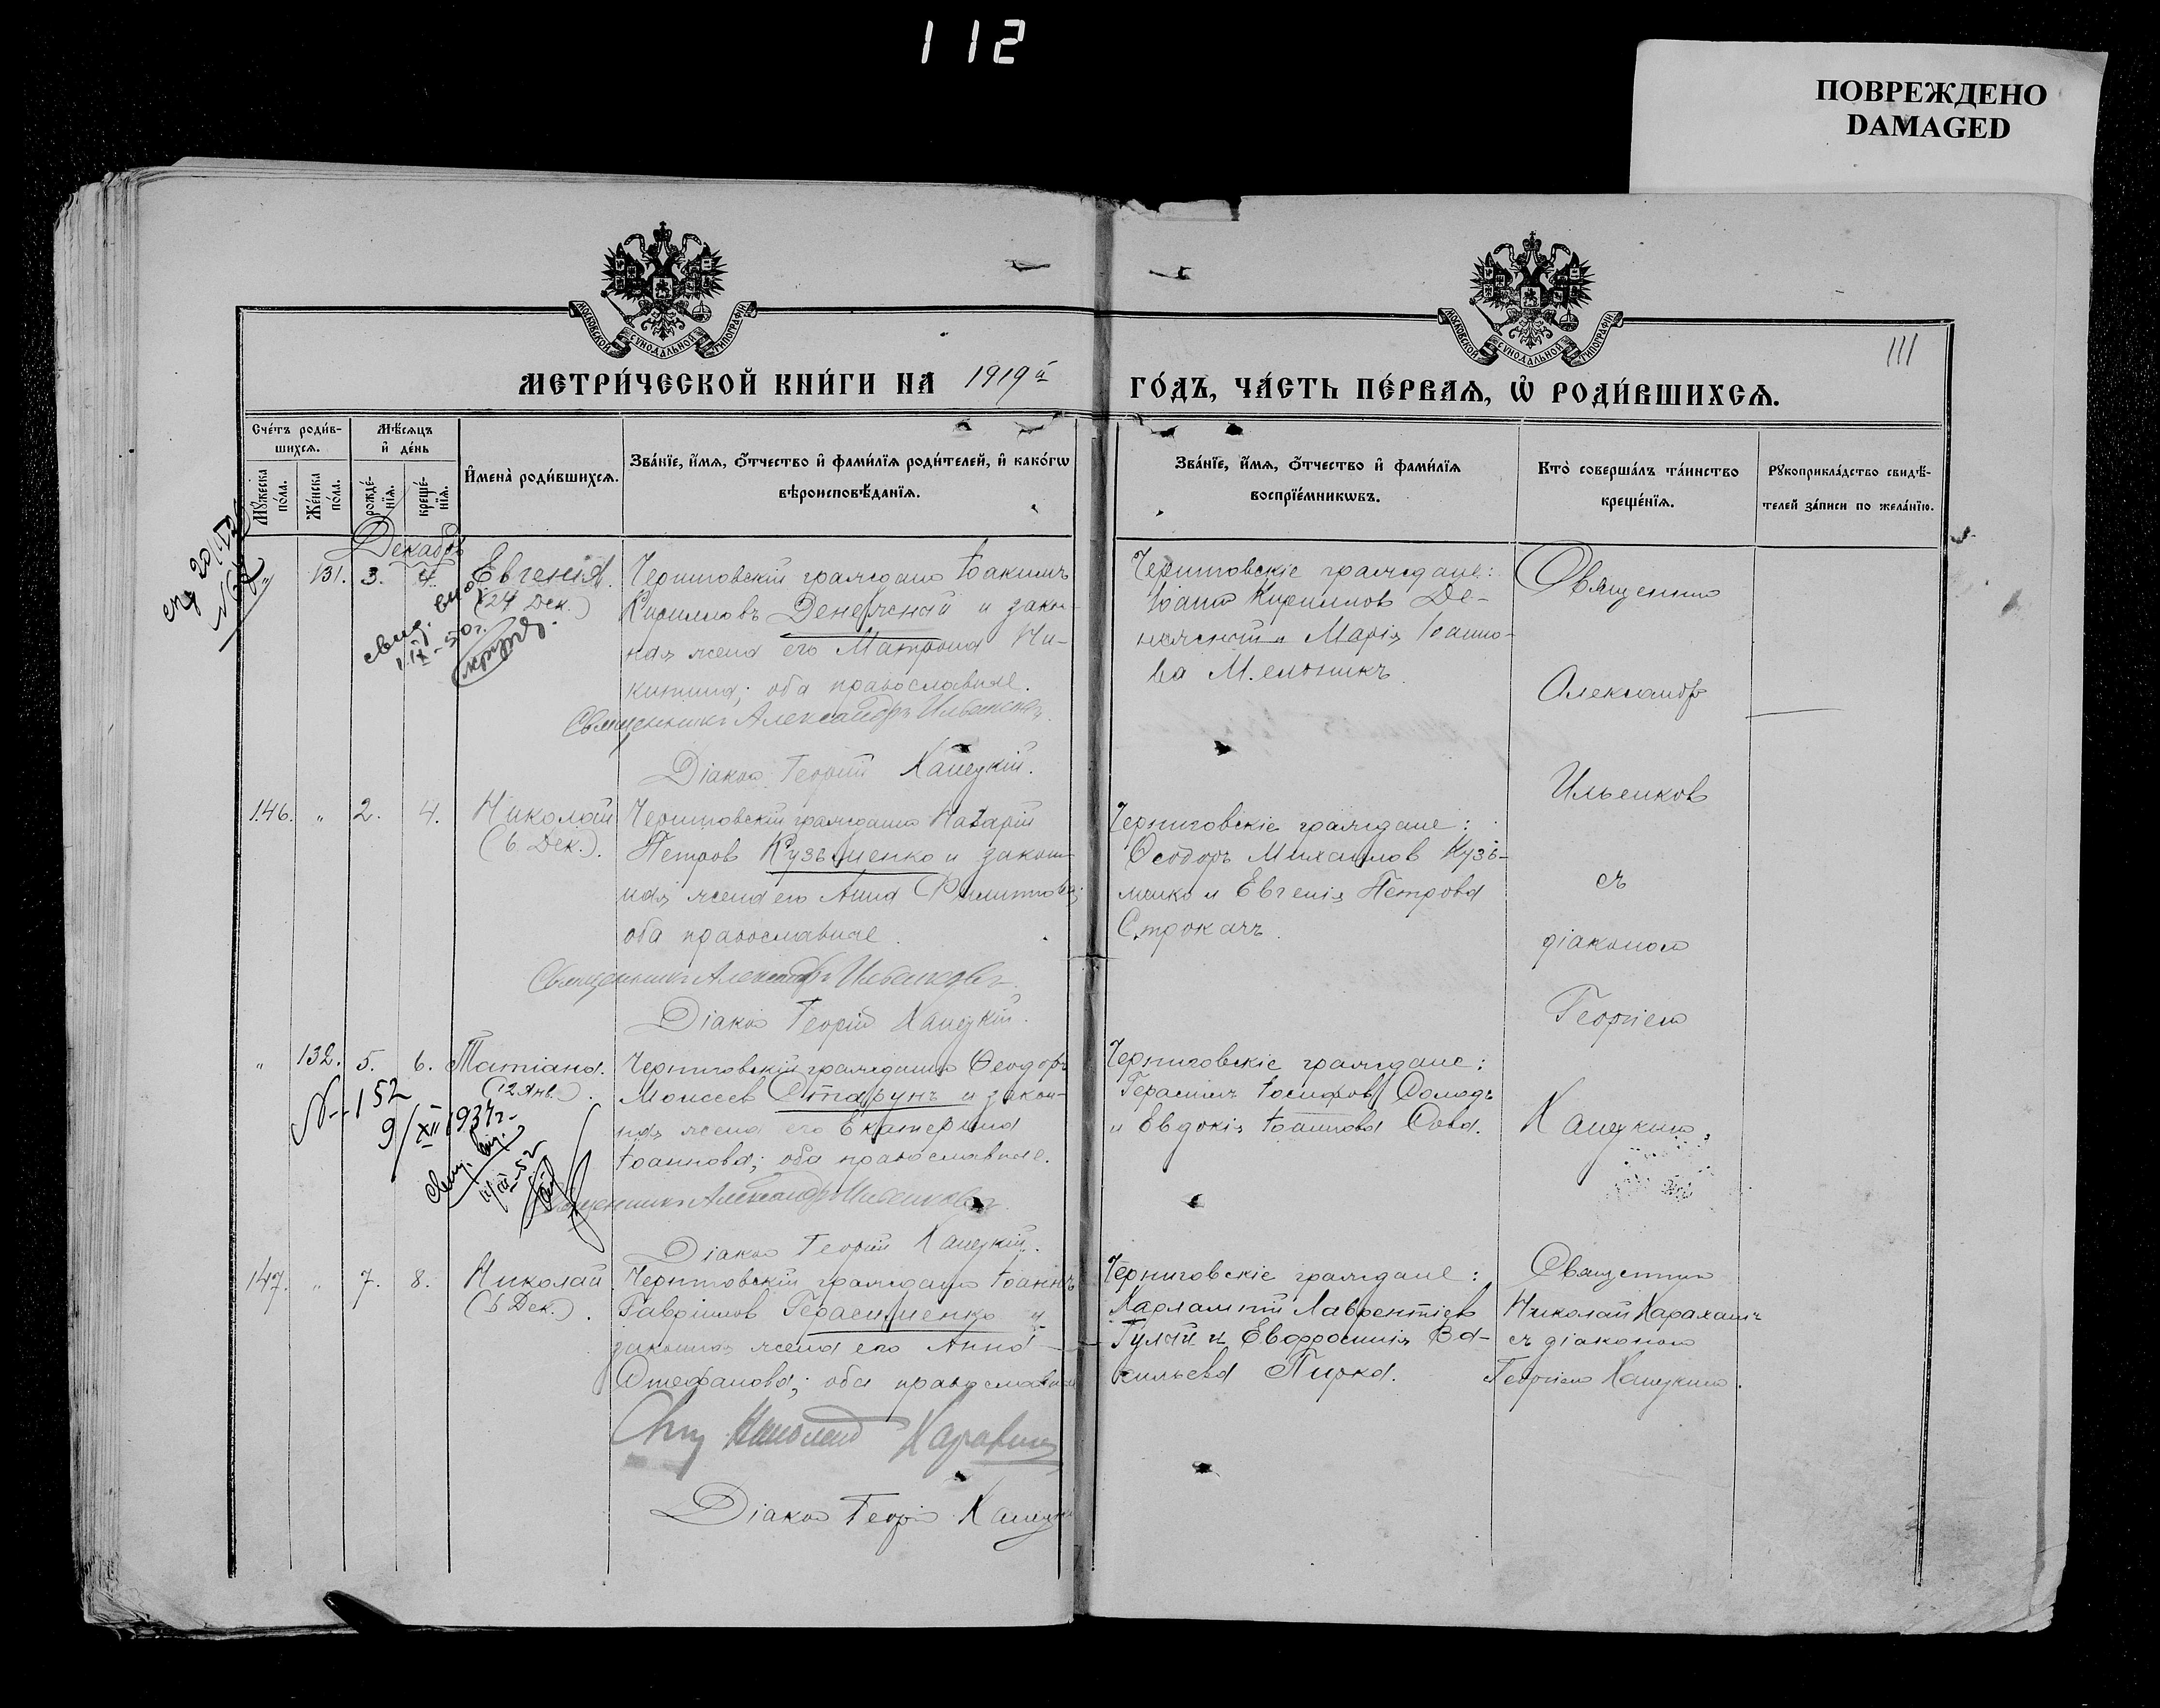 112
ПОВРЕЖДЕНО
DAMAGED
МОСКОВСКОЙ СУНОДАЛЬНОЙ ТИПОГРАФІИ
МОСКОВСКОЙ СУНОДАЛЬНОЙ ТИПОГРАФІИ
111
МЕТРИ́ЧЕСКОЙ КНИ́ГИ НА 1919й
ГО́ДЪ, ЧА́СТЬ ПЕ́РВАЯ, Ѡ РОДИ́ВШИХСЯ.
Сче́тъ роди́в-
шихся.
Мꙋжеска по́ла.
Же́нска по́ла.
Мѣ́сяцъ
и де́нь
рожде́-
нїя.
креще́-
нїя.
Имена̀ роди́вшихся.
Зва́нїе, и́мя, ѻ́тчество и фами́лїя роди́телей, и како́гѡ
вѣроисповѣ́данїя.
Зва́нїе, и́мя, ѻ́тчество и фами́лїя
воспрїе́мникѡвъ.
Кто̀ соверша́лъ та́инство
креще́нїя.
Рꙋкоприкла́дство свидѣ́-
телей за́писи по жела́нїю.
Декабрь
131. 3. 4. Евгенія
(24 Дек.)
Черниговскій гражданин Іоакимъ
Кирилловъ Денежный и закон-
ная жена его Матрона Ни-
китина; оба православные.
Священникъ Александръ Ильенковъ
Діакон Георгій Капецкій.
Черниговскіе граждане:
Іоанн Кириллов Де-
нежный и Марія Іоанно-
ва Мельникъ.
Священник
Александр
Ильенков
съ
діаконом
Георгіем
Капецким.
146. " 2. 4. Николай
(6 Дек.).
Черниговскій гражданин Назарій
Петров Кузьменко и закон-
ная жена его Анна Филиппова;
оба православные.
Священникъ Александръ Ильенковъ
Діакон Георгій Капецкій.
Черниговскіе граждане:
Ѳеодоръ Михаилов Кузь-
менко и Евгенія Петрова
Строкачъ.
" 132. 5. 6. Татіана.
(12 Янв.).
N 152
9/XII 1937г.
Черниговскій гражданин Ѳеодоръ
Моисеев Старунъ и закон-
ная жена его Екатерина
Іоаннова; оба православные.
Священникъ Александръ Ильенковъ
Діакон Георгій Капецкій.
Черниговскіе граждане:
Герасимъ Іосифов Солодъ
и Евдокія Іоаннова Сова.
147. " 7. 8. Николай
(6 Дек.).
Черниговскій гражданин Іоаннъ
Гавріилов Герасименко и
законная жена его Анна
Стефанова; оба православные
Діакон Георгій Капецкій
Черниговскіе граждане:
Харлампій Лаврентіев
Гулый и Евфросинія Ва-
сильева Пирка.
Священник
Николай
съ діаконом
Георгіем Капецким.